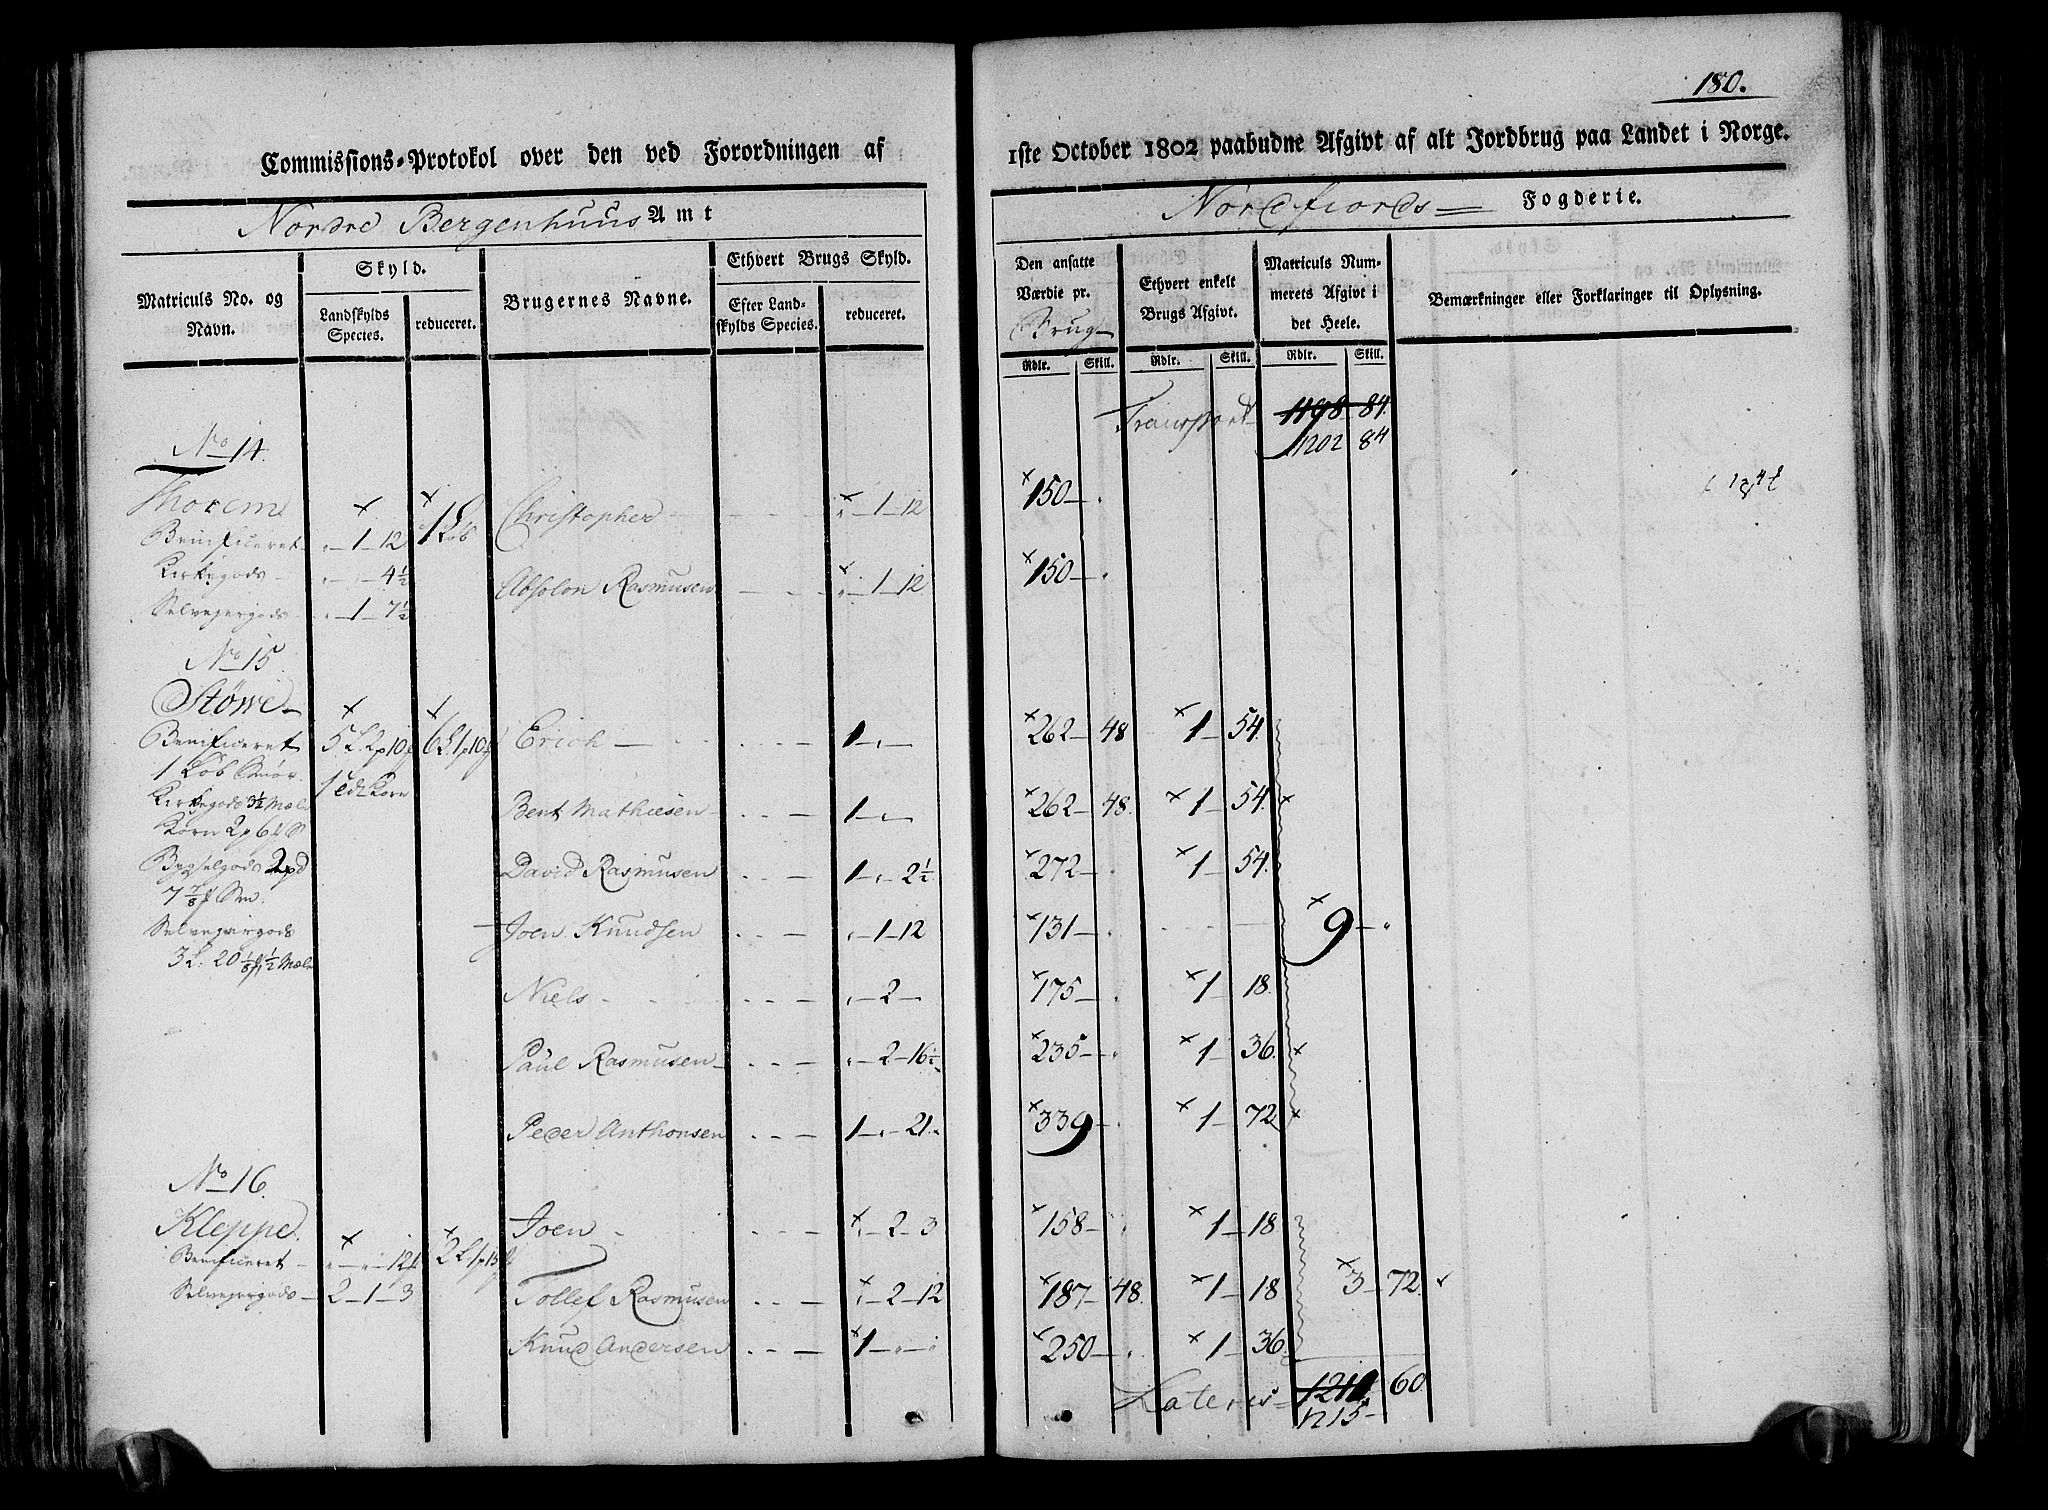 180.
Commissions-Protokol over den ved Forordningen af
1ste October 1802 paabudne Afgivt af alt Jordbrug paa Landet i Norge.
Nordre Bergenhuus Amt
Nordfiords Fogderie.
Matriculs No. og Navn.
Skyld.
Landskylds Species.
reduceret.
Brugernes Navne.
Ethvert Brugs Skyld.
Efter Landskylds Species.
reduceret.
Den ansatte Værdie pr. Brug
Ethvert enkelt Brugs Afgivt.
Matriculs Nummerets Afgivt i det Heele.
Bemærkninger eller Forklaringer til Oplysning.
Rdlr. Skill. Rdlr. Skill. Rdlr. Skill.
Transport 1198 84.
1202 84
No 14.
Thorem 1 Løb Christopher 1-12 150
Benificeret 1-12
Kirkegods 4½ Absolon Rasmusen 1-12 150
Selvejergods 1-7½
No 15
Støvre
Benificeret 5 L. 2 p 10 6 L 1 p 10 Erich 1 262-48 1-54.
1 Løb Smør.
Kirkegods 3½ Mæle Korn Bent Mathiesen 1 262-48. 1-54.
Korn 2 p 6
Bygselgods 2 pd David Rasmusen 1-2½ 272 1-54.
7 7/8
Selvejergods Joen Knudsen 1-12 131 9
3 L: 20 1/8 1½ Mæle
Niels 2 175 1-18.
Paul Rasmusen 2-16½ 235 1-36.
Peder Anthonsen 1-21 339 1-72
No 16.
Kleppe Joen 2-3 158 1-18
Benificeret 12 2 L 1 p 15
Selvejergods 2-1-3 Tollef Rasmusen 2-12 187-48. 1-18 3-72.
Knud Andersen 1 250 1-36.
Lateris 1211 60
1215